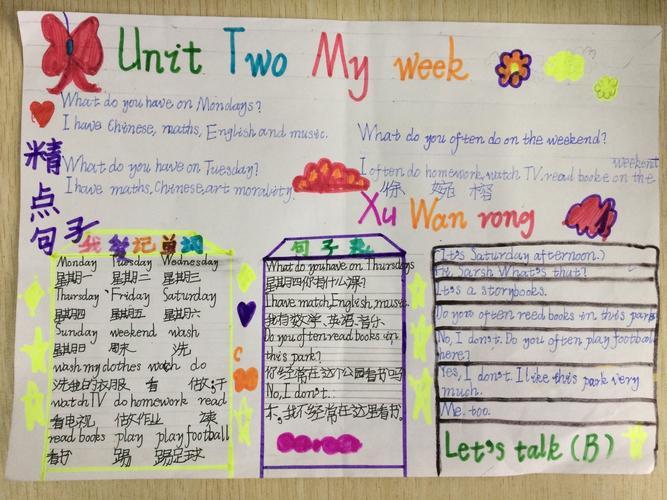 Unit Two My week
What do you have on Mondays?
I have Chinese, maths, English and music.
What do you have on Tuesday?
I have maths, Chinese, art morality.
精点句子
What do you often do on the weekend?
I often do homework, watch TV, read booke on the weekend
徐 婉 榕
Xu Wan rong
我会记单词
Monday Tuesday Wednesday
星期一 星期二 星期三
Thursday Friday Saturday
星期四 星期五 星期六
Sunday weekend wash
星期日 周末 洗
wash my clothes watch do
洗我的衣服 看 做;干
watch TV do homework read
看电视 做作业 读
read books play play football
看书 踢 踢足球
句子
What do you have on Thursdays
星期四你有什么课?
I have match, English, music.
我有数学、英语、音乐
Do you often read books in
this park?
你经常在这个公园看书吗
No, I don't.
不,我不经常在这里看书。
(It's Saturday afternoon.)
Hi, Sarsh What's that?
It's a storybooks.
Do you often reed books in this park
No, I don't. Do you often play football
here?
Yes, I don't. I like this park very
much.
Me. too.
Let's talk (B)